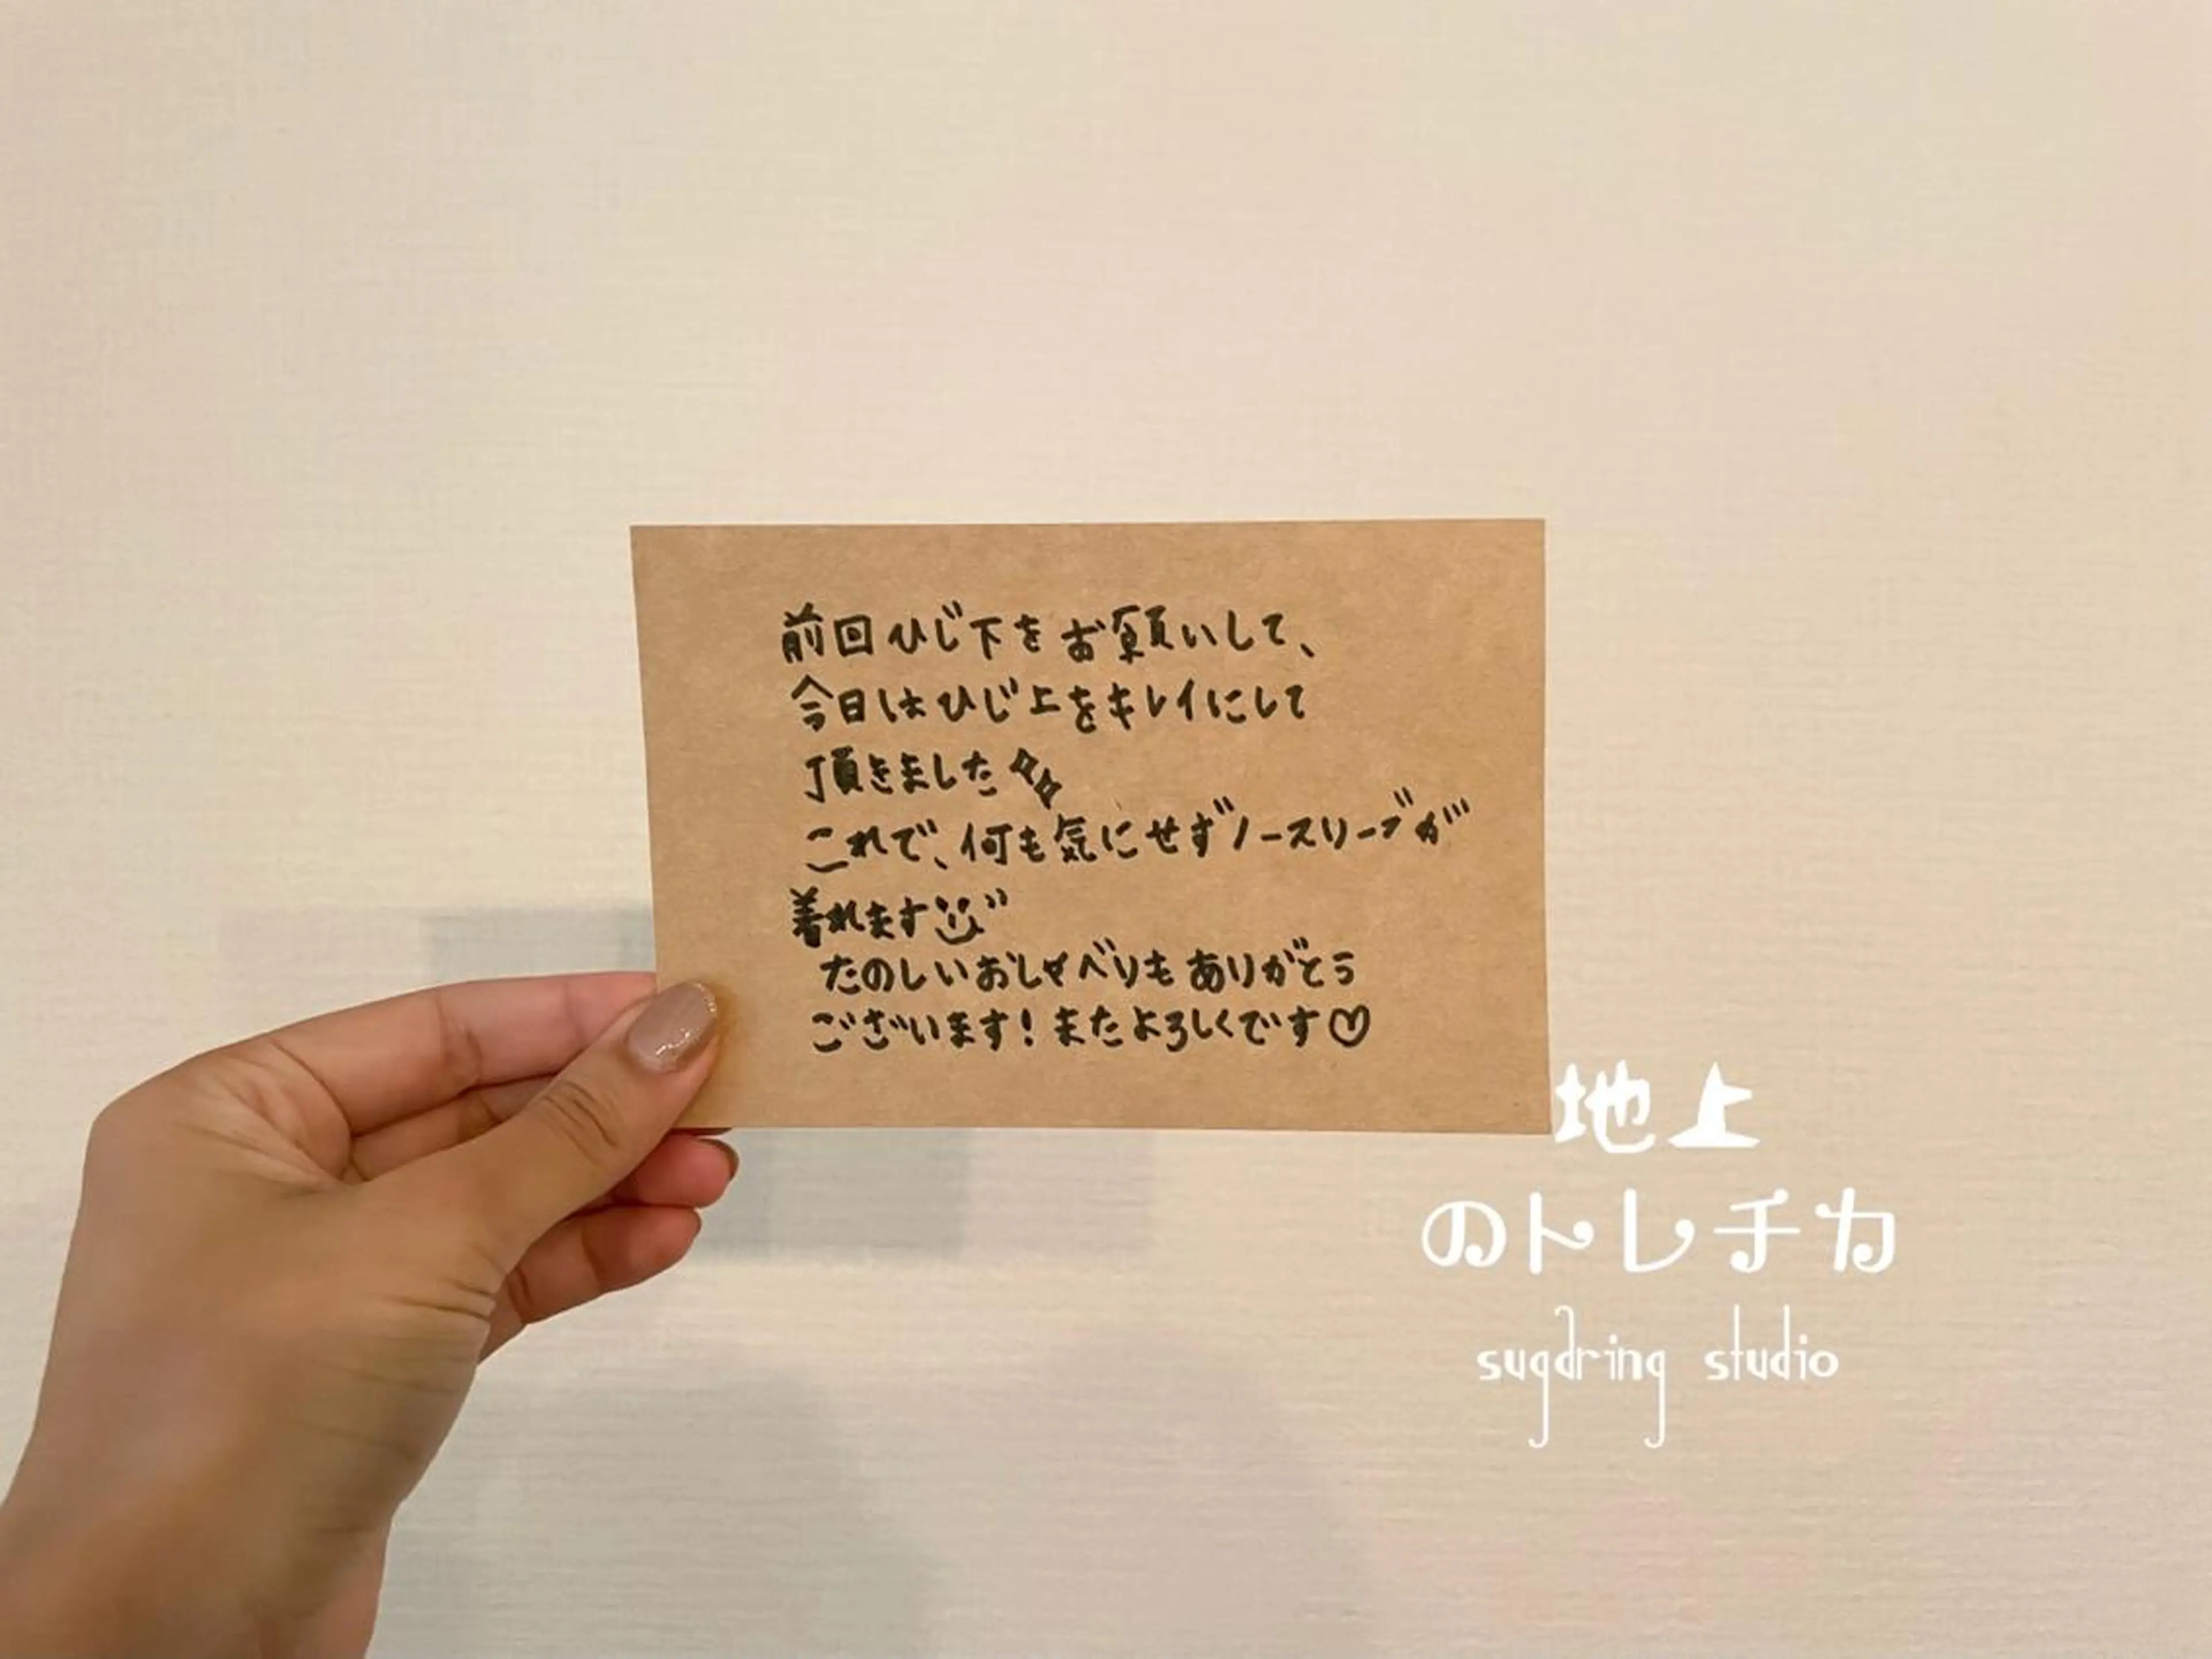 前回ひじ下をお願いして、
今日はひじ上をキレイにして
頂きました✨
これで、何も気にせずノースリーブが
着れます
たのしいおしゃべりもありがとう
ございます!またよろしくです♡
地上
のトレチカ
sugaring studio